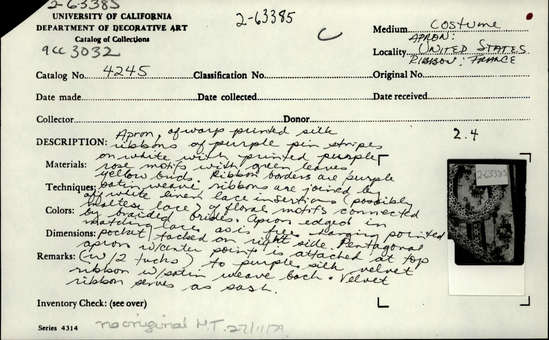 2-63385
UNIVERSITY OF CALIFORNIA
DEPARTMENT OF DECORATIVE ART
Catalog of Collections
acc 3032
2-63385
C
Medium Costume
APRON:
Locality UNITED STATES
RIBBON: FRANCE
Catalog No. 4245
Classification No.
Original No.
Date made
Date collected
Date received
Collector
Donor
2.4
DESCRIPTION: Apron, of warp printed silk
ribbons of purple pin stripes
on white with printed purple
Materials: rose motifs with green leaves,
yellow buds. Ribbon borders are purple
Techniques: satin weave, ribbons are joined by
off white linen lace insertions (possibly
Colors: Maltese lace) of floral motifs connected
by braided brides. Apron edged in
matching lace as is free hanging pointed
Dimensions: pocket tacked on right side. Pentagonal
apron w/center point is attached at top
Remarks: (w/2 tucks) to purple silk velvet
ribbon w/satin weave back. Velvet
ribbon serves as sash.
2-63385
Inventory Check: (see over)
Series 4314
no original M.T.